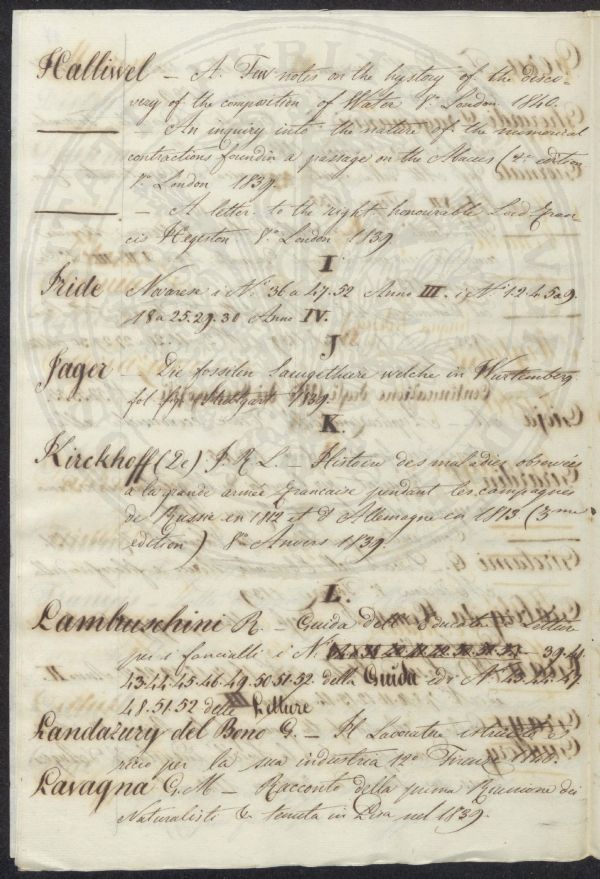 Halliwel – A. Few notes on the hystory of the disco-
very of the composition of Water 8º London 1840.
– An inquiry into the nature of the numerical
contractions foundin a passage on the Maces (2d edition
8º London 1839.
– A letter to the right honourable Lord Fran
cis Hegeston 8º London 1839
I
Iride Novarese i Nⁱ 36 a 47. 52 Anno III. i Nⁱ 1. 2. 4. 5 a 9.
18 a 25. 29. 30 Anno IV.
J
Jager Die fossilen Saeugethiere welche in Würtemberg
fol fig. Stuttgart 1839
K.
Kirckhoff (De) J. R. L. – Histoire des maladies observées
a la grande armée francaise pendant les campagnes
de Russie en 1812 et d'Allemagne en 1813 (3me
edition) 8º Anvers 1839.
L.
Lambruschini R. Guida dell' Educatore Letture
per i fanciulli i Nⁱ 39. 41.
43. 44. 45. 46. 49. 50. 51. 52 della Guida ed i Nⁱ 43. 44. 47
48. 51. 52 delle Letture
Landazury del Bono G. – Il Lavoratore istruito
per la sua industria 12º Firenze 1840.
Lavagna G. M – Racconto della prima Riunione dei
Naturalisti & tenuta in Pisa nel 1839.